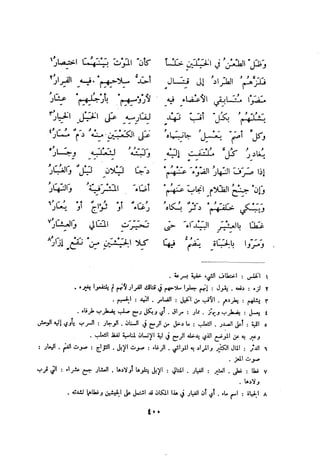 وَظَلَّ الطَّعْنُ في الخَيْلَيْنِ خَلْسًا كأنّ المَوْتَ بَيْنَهُما اختِصارُ١
فَلَزَّهُمُ الطِّرادُ إلى قِتالٍ أحَدُّ سِلاحِهِمْ فيهِ الفِرارُ٢
مَضَوْا مُتَسابِقي الأعْضاءِ فيهِ لأرْؤسِهِمْ بأرْجُلِهِمْ عِثارُ
يَشُلُّهُمُ بكُلّ أقَبَّ نَهْدٍ لِفارِسِهِ على الخَيْلِ الخِيارُ٣
وكلِّ أصَمَّ يَعْسِلُ جانِباهُ على الكَعْبَينِ مِنْهُ دَمٌ مُمارُ٤
يُغادِرُ كُلَّ مُلْتَفِتٍ إلَيْهِ ولَبَّتُهُ لثَعْلَبِهِ وِجارُ٥
إذا صَرَفَ النّهارُ الضّوْءَ عَنهُمْ دَجا لَيْلانِ لَيْلٌ والغُبارُ
وإنْ جِنْحُ الظّلامِ انجابَ عَنهُمْ أضاءَ المَشْرَفيّةُ والنّهارُ
ويَبْكي خَلفَهُمْ دَثْرٌ بُكاهُ رُغاءٌ أوْ ثُؤاجٌ أوْ يُعارُ٦
غَطا بالعِثْيَرِ البَيْداءَ حتى تَحَيّرَتِ المَتالي والعِشارُ٧
ومَرّوا بالجَباةِ يَضُمُّ فيها كِلا الجَيْشَينِ مِنْ نَقْعٍ إزارُ٨
١ الخلس : اختطاف الشيء خفية بسرعة .
٢ لزه : دفعه . يقول : إنهم جعلوا سلاحهم في قتالك الفرار لأنهم لم ينتفعوا بغيره .
٣ يشلهم : يطردهم . الأقب من الخيل : الضامر . النهد : الجسيم .
٤ يعسل : يضطرب ويهتز . ممار : مراق . أي وبكل رمح صلب يضطرب طرفاه .
٥ اللبة : أعلى الصدر . الثعلب : ما دخل من الرمح في السنان . الوجار : السرب يأوي إليه الوحش
وعبر به عن الموضع الذي يدخله الرمح في لبة الإنسان لمناسبة لفظ الثعلب .
٦ الدثر : المال الكثير والمراد به المواشي . الرغاء : صوت الإبل . الثؤاج : صوت الغنم . اليعار :
صوت المعز .
٧ غطا : غطى . العثير : الغبار . المتالي : الإبل يتلوها أولادها . العشار جمع عشراء : التي قرب
ولادها .
٨ الجباة : اسم ماء . أي أن الغبار في هذا المكان قد اشتمل على الجيشين وغطاهما لشدته .
٤٠٠